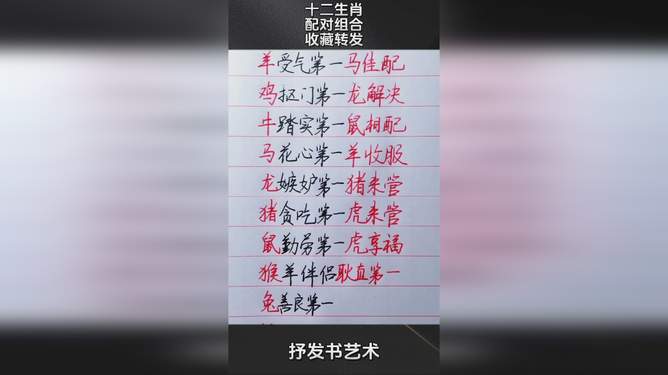 十二生肖
配对组合
收藏转发
羊受气第一马佳配
鸡抠门第一龙解决
牛踏实第一鼠相配
马花心第一羊收服
龙嫉妒第一猪来管
猪贪吃第一虎来管
鼠勤劳第一虎享福
猴羊伴侣耿直第一
兔善良第一
抒发书艺术